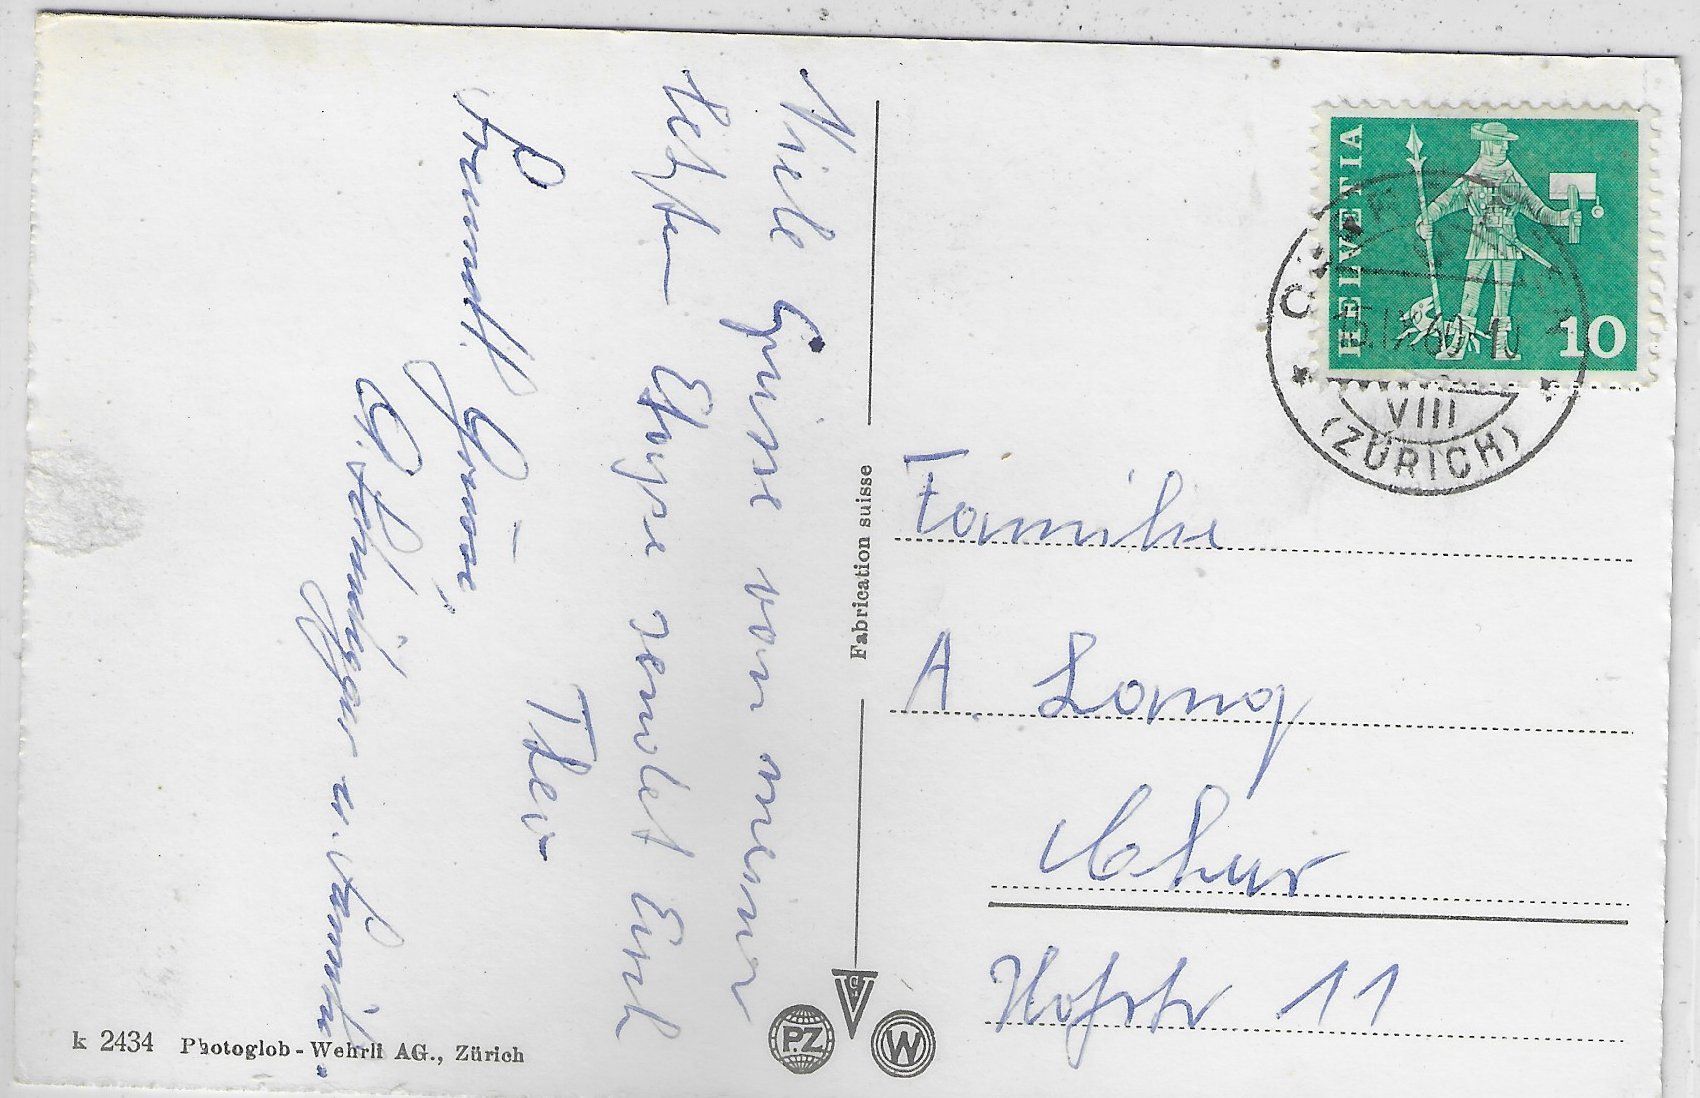 Viele Grüsse von meiner
letzten Etappe sendet Euch
Theo
Freundl. Grüsse,
u. Familie.
Fabrication suisse
HELVETIA
10
VIII
(ZÜRICH)
Familie
A. Lang
Chur
Hofstr 11
k 2434 Photoglob-Wehrli AG., Zürich
PZ
W